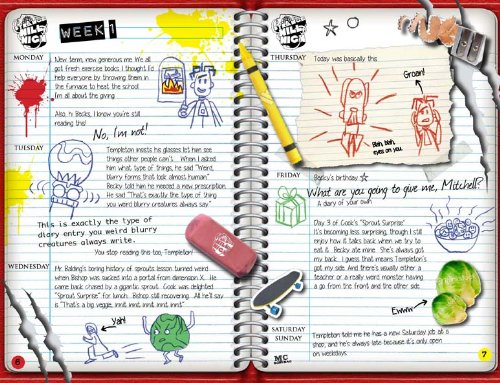 WEEK 1
MONDAY
New term, new generous me. We all
got fresh exercise books. I thought I'd
help everyone by throwing them in
the furnace to heat the school.
I'm all about the giving.
Also, hi Becks, I know you're still
reading this!
No, I'm not!
TUESDAY
Templeton insists his glasses let him see
things other people can't. When I asked
him what type of things, he said "Weird,
blurry forms that talk almost human."
Becky told him he needed a new prescription.
He said "That's exactly the type of thing
you weird blurry creatures always say."
This is exactly the type of
diary entry you weird blurry
creatures always write.
You stop reading this too, Templeton!
WEDNESDAY
Mr. Balding's boring history of sprouts lesson turned weird
when Bishop was sucked into a portal from dimension X. He
came back chased by a gigantic sprout. Cook was delighted.
"Sprout Surprise" for lunch. Bishop still recovering. All he'll say
is "That's a big veggie, innit, innit, innit, innit, innit"
Yah!
6
THURSDAY
Today was basically this...
Groan!
Blah, blah,
eyes on you.
FRIDAY
Becky's birthday
What are you going to give me, Mitchell?
A diary of your own.
Day 3 of Cook's "Sprouts Surprise".
It's becoming less surprising, though I still
enjoy how it talks back when we try to
eat it. Becky ate mine. She's always got
my back. I guess that means Templeton's
got my side. And there's usually either a
teacher or a really weird monster having
a go from the front and the other side.
Ewww
SATURDAY
SUNDAY
Templeton told me he has a new Saturday job at a
shop, and he's always late because it's only open
on weekdays.
7